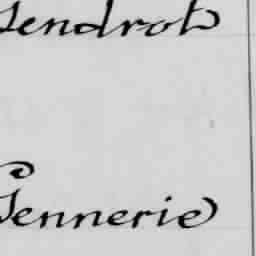 Gendrot
Gennerie